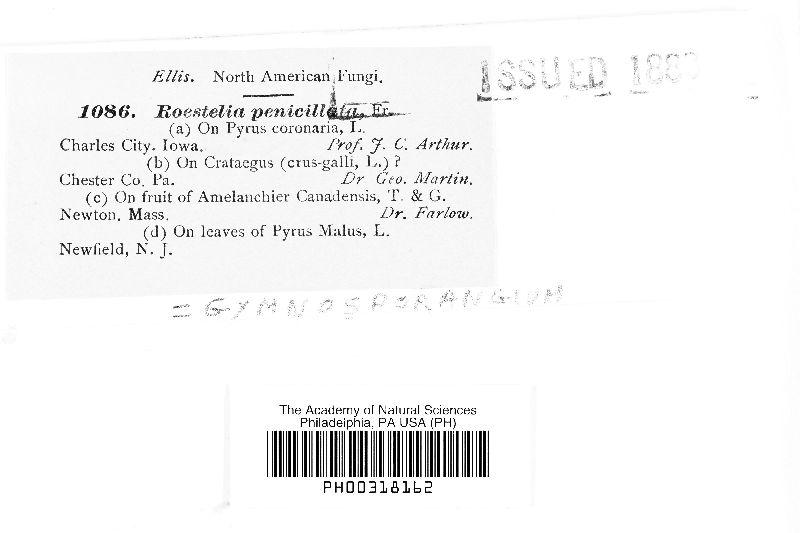 Ellis. North American Fungi.
ISSUED 188
1086. Roestelia penicillata, Fr.
(a) On Pyrus coronaria, L.
Charles City. Iowa. Prof. J. C. Arthur.
(b) On Crataegus (crus-galli, L.) ?
Chester Co. Pa. Dr Geo. Martin.
(c) On fruit of Amelanchier Canadensis, T. & G.
Newton. Mass. Dr. Farlow.
(d) On leaves of Pyrus Malus, L.
Newfield, N. J.
= GYMNOSPORANGIUM
The Academy of Natural Sciences
Philadelphia, PA USA (PH)
PH00318162